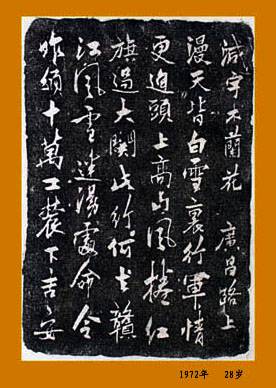 減字木蘭花 廣昌路上
漫天皆白雪裏行軍情
更迫頭上高山風捲紅
旗過大關此行何去贛
江風雪迷漫處命令
昨頒十萬工農下吉安
1972年 28岁